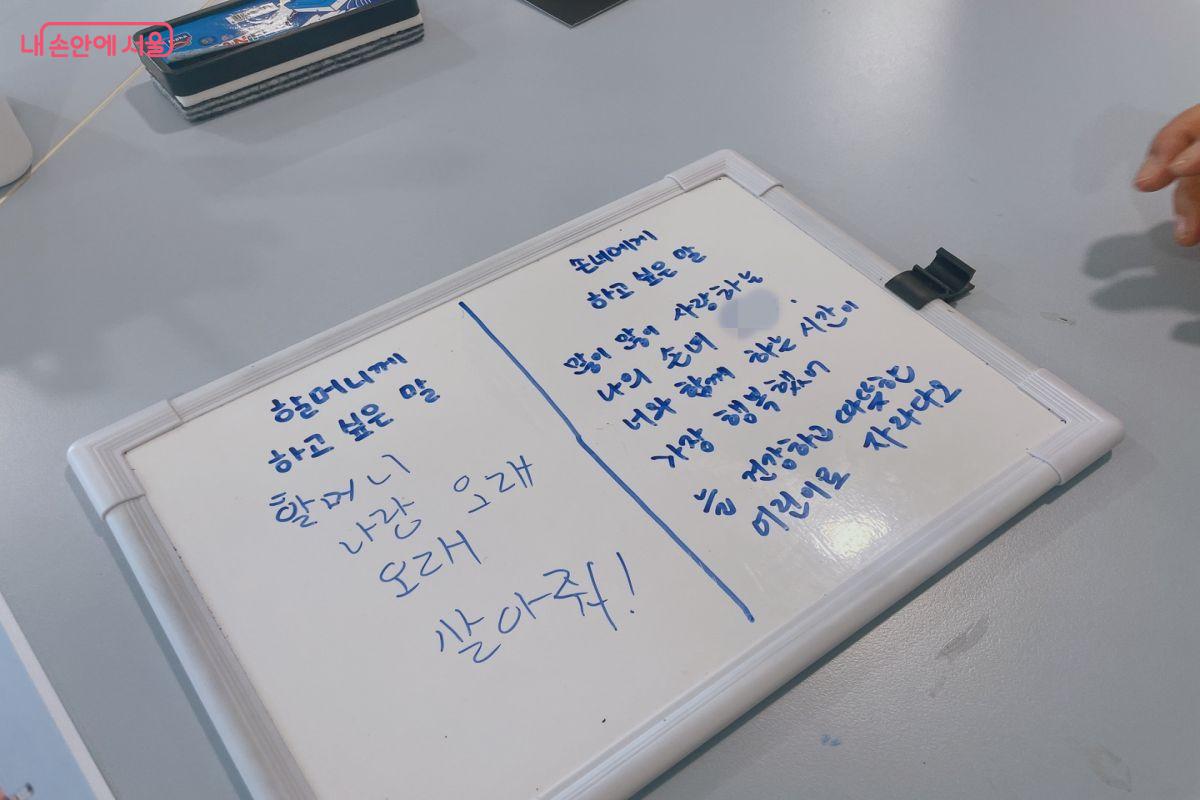 내 손안에 서울
할머니께
하고 싶은 말
할머니
나랑 오래
오래
살아줘!
손녀에게
하고 싶은 말
많이 많이 사랑하는
나의 손녀
너와 함께 하는 시간이
가장 행복했어
늘 건강하고 따뜻한
어린이로 자라다오